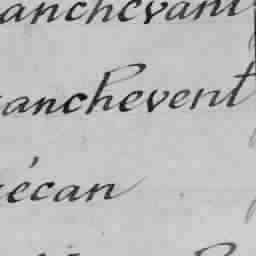 anchevant
anchevent
écan